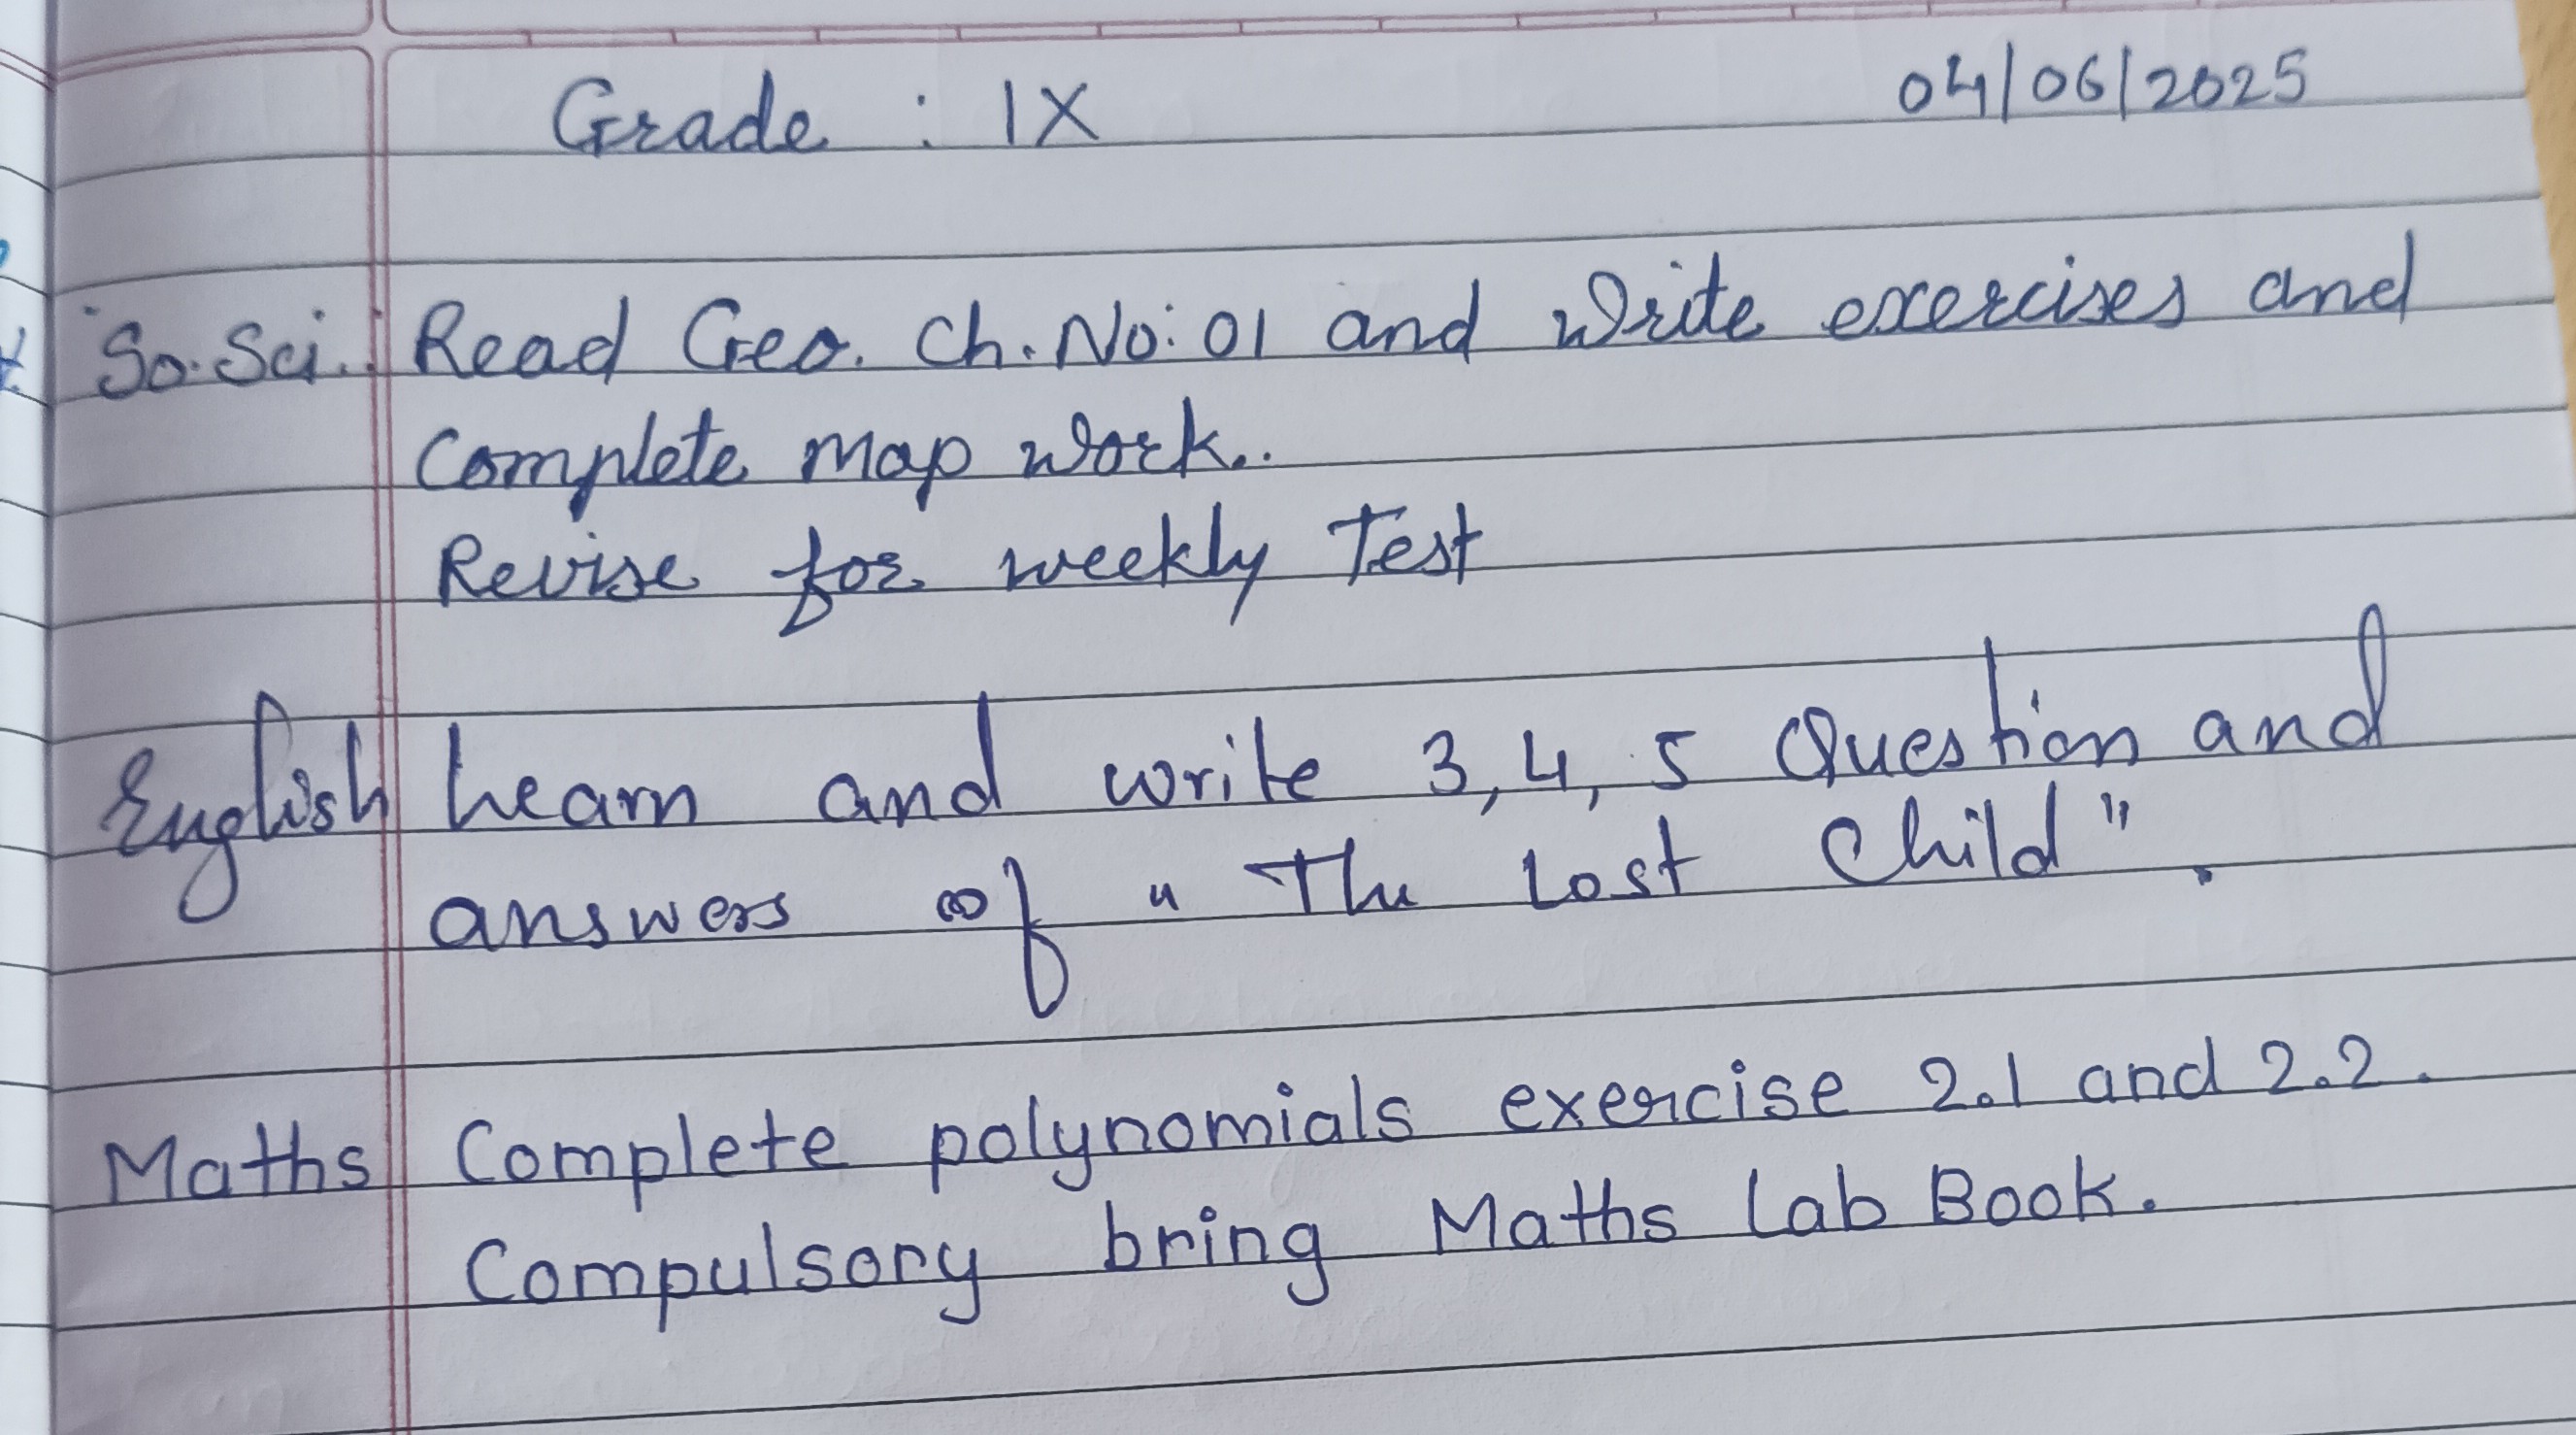 Grade : IX 04/06/2025
So. Sci. Read Geo. Ch. No: 01 and write exercises and
Complete map work..
Revise for weekly Test
English Learn and write 3, 4, 5 Question and
answers of " The Lost Child ".
Maths Complete polynomials exercise 2.1 and 2.2.
Compulsory bring Maths Lab Book.